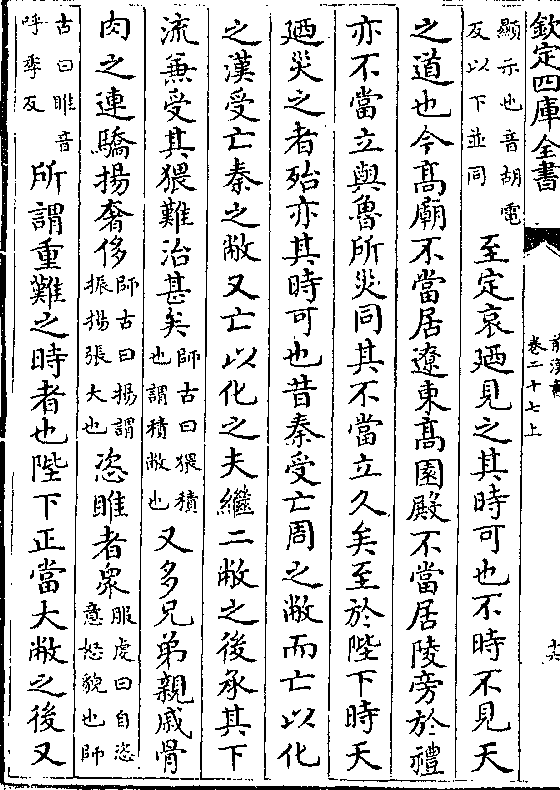 欽定四庫全書
前漢書
卷二十七上
顯示也音胡電
反以下並同
至定哀廼見之其時可也不時不見天
之道也今髙廟不當居遼東髙園殿不當居陵旁於禮
亦不當立與魯所災同其不當立久矣至於陛下時天
廼災之者殆亦其時可也昔秦受亡周之敝而亡以化
之漢受亡秦之敝又亡以化之夫繼二敝之後承其下
流兼受其猥難治甚矣
師古曰猥積
也謂積敝也
又多兄弟親戚骨
肉之連驕揚奢侈
師古曰揚謂
振揚張大也
恣睢者衆
服虔曰自恣
意怒貌也師
古曰睢音
呼季反
所謂重難之時者也陛下正當大敝之後又